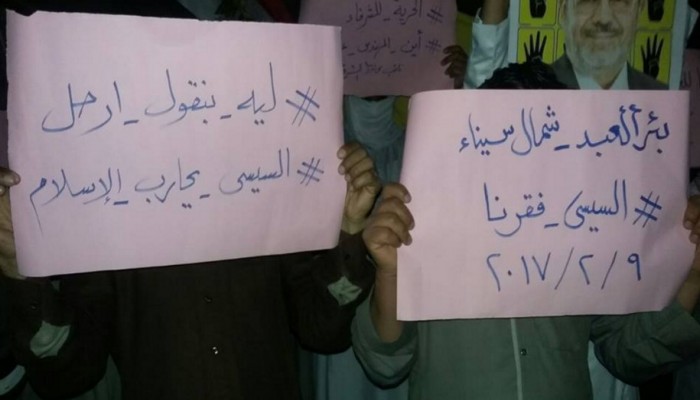 #الحرية_للشرفاء
#أين_المهندس
#ليه_بنقول_ارحل
#السيسى_يحارب_الإسلام
بئر العبد_شمال سيناء
#السيسى_فقرنا
٢٠١٧/٢/٩